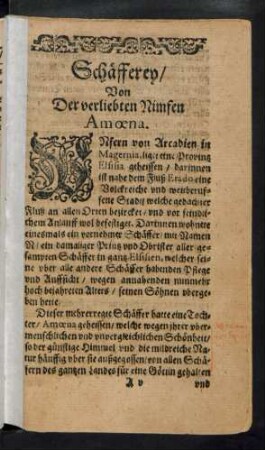 Schäfferey/
Von
Der verliebten Nimfen
Amœna.
UNfern von Arcadien in
Magernia, ligt eine Provintz
Elisia geheissen / darinnen
ist nahe dem Fluß Eradio eine
Volckreiche und weitberuf-
fene Stadt welche gedachter
Fluß an allen Orten bezircket / und vor feindli-
chem Anlauff wol befestiget. Darinnen wohnete
einesmals ein vornehmer Schäffer mit Namen
N/ ein damaliger Printz und Obrister aller ge-
sampten Schäffer in gantz Elisien, welcher sei-
ne über alle andere Schäffer habenden Pflege
und Auffsicht / wegen annahenden nunmehr
hoch bejahreten Alters / seinen Söhnen überge-
ben hette.
Dieser mehrerregte Schäffer hatte eine Toch-
ter / Amœna geheissen / welche wegen ihrer über-
menschlichen und unvergleichlichen Schönheit /
so der günstige Himmel und die mildreiche Na-
tur häuffig über sie außgegossen / von allen Schä-
fern des gantzen Landes für eine Göttin gehalten
A v und